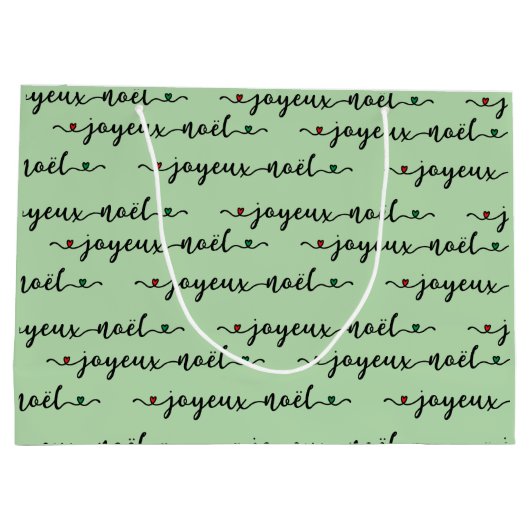 yeux noël joyeux noël j
joyeux noël joyeux noël
noël joyeux noël joyeux
yeux noël joyeux noël j
joyeux noël joyeux noël
noël joyeux noël joyeux
yeux noël joyeux noël j
joyeux noël joyeux noël
noël joyeux noël joyeux
yeux noël joyeux noël j